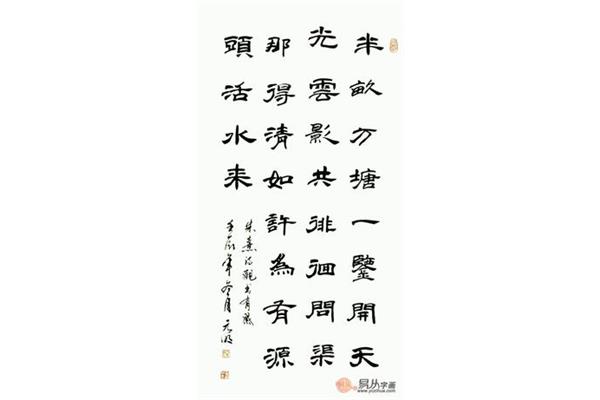 半畝方塘一鑒開天
光雲影共徘徊問渠
那得清如許為有源
頭活水来
朱熹詩觀書有感
壬辰年冬月
易从字画